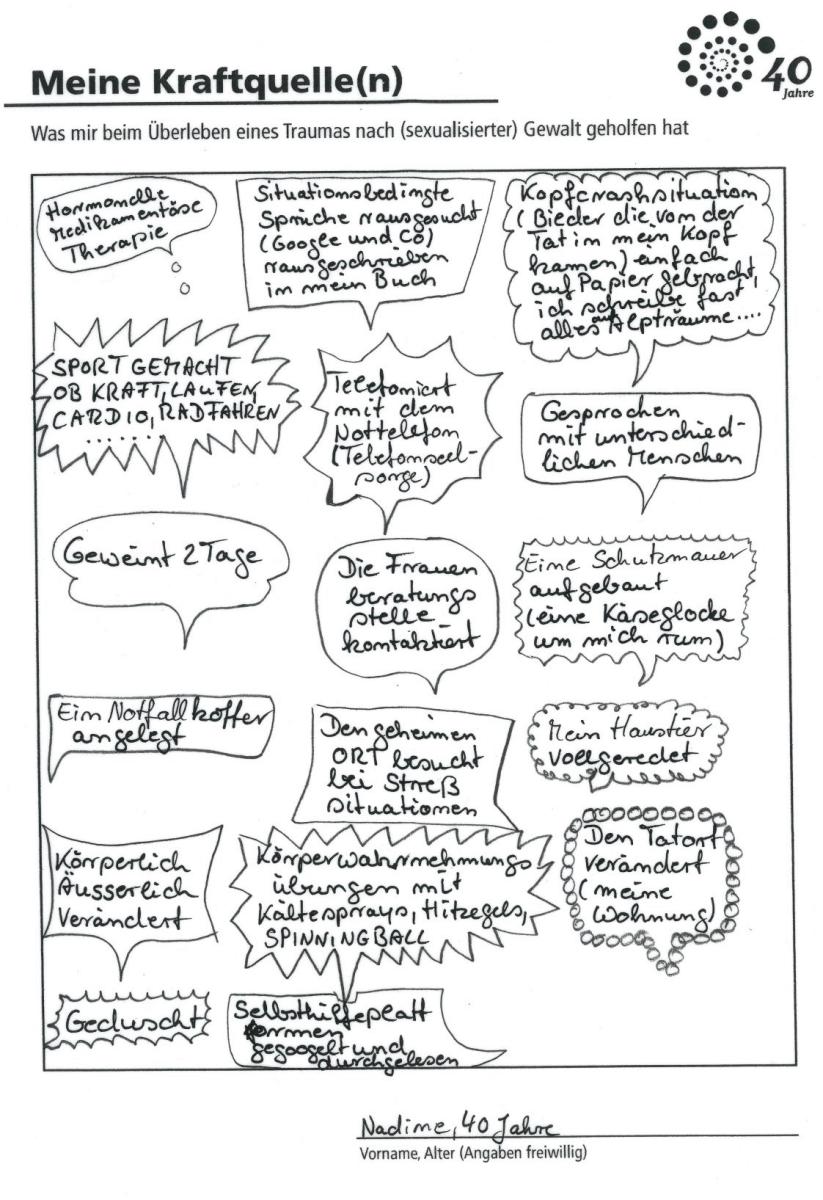 40
Jahre
Meine Kraftquelle(n)
Was mir beim Überleben eines Traumas nach (sexualisierter) Gewalt geholfen hat
Hormonelle
Medikamentöse
Therapie
Situationsbedingte
Sprüche rausgesucht
(Google und Co)
rausgeschrieben
in mein Buch
Kopfcrashsituation
(Bieder die von der
Tat in mein Kopf
kamen) einfach
auf Papier gebracht,
ich schreibe fast
alles auf Alpträume....
SPORT GEMACHT
OB KRAFT, LAUFEN,
CARDIO, RADFAHREN
.......
Telefoniert
mit dem
Nottelefon
(Telefonseel-
sorge)
Gesprochen
mit unterschied-
lichen Menschen
Geweint 2 Tage
Die Frauen
beratungs
stelle
kontaktiert
Eine Schutzmauer
aufgebaut
(eine Käseglocke
um mich rum)
Ein Notfallkoffer
angelegt
Den geheimen
ORT besucht
bei Streß
situationen
Mein Haustier
vollgeredet
Körperlich
Äusserlich
Verändert
Körperwahrnehmungs
übungen mit
Kältesprays, Hitzegels,
SPINNINGBALL
Den Tatort
verändert
(meine
Wohnung)
Geduscht
Selbsthilfeplatt
formen
gegoogelt und
durchgelesen
Nadine, 40 Jahre
Vorname, Alter (Angaben freiwillig)